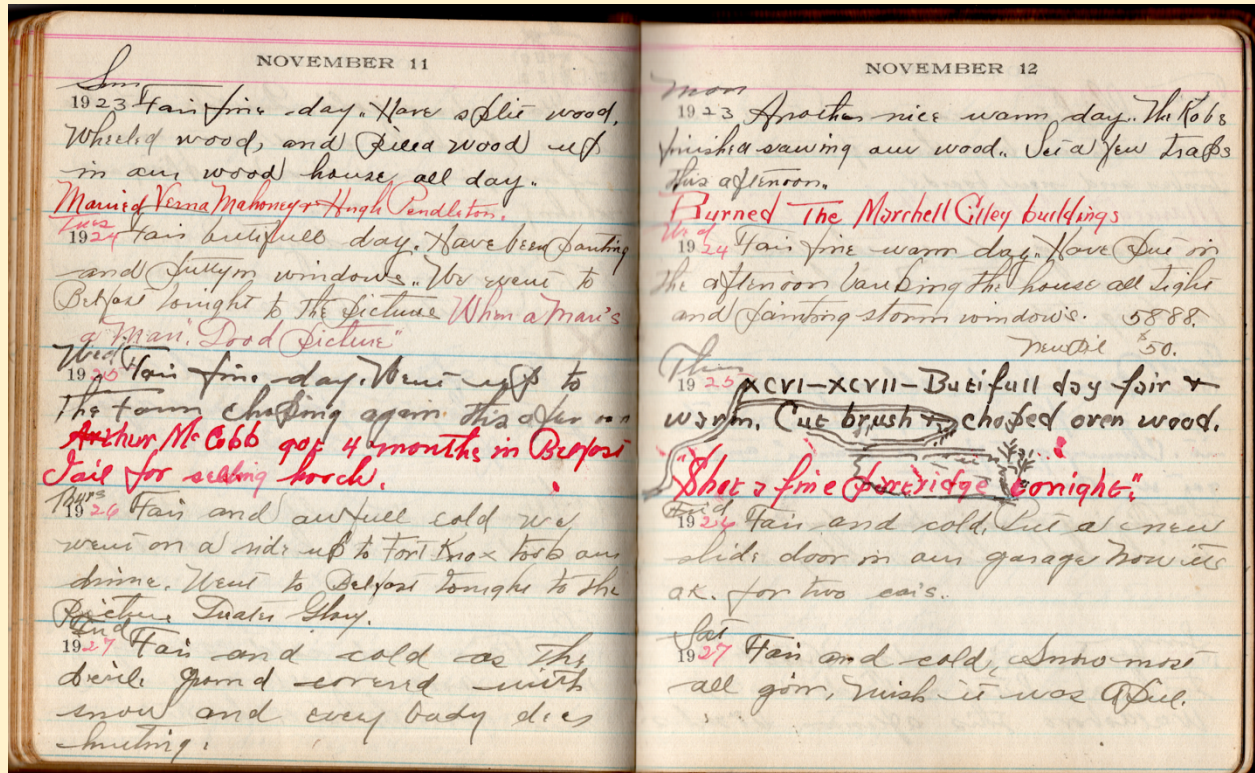 NOVEMBER 11
Sun
1923 Fair fine day. Have split wood,
Wheeled wood, and piled wood up
in our wood house all day.
Married Verna Mahoney & Hugh Pendleton.
Tues
1924 Fair butifull day. Have been painting
and puttyin windows. We went to
Belfast tonight to the picture When a Man's
a "Man". Good Picture"
Wed
1925 Fair fine day. Went up to
The Farm choping again this after oon
Arthur McCobb got 4 months in Belfast
Jail for selling hooch.
Thurs
1926 Fair and awfull cold we
went on a ride up to Fort Knox took our
dinne. Went to Belfast tonight to the
Picture
Frid
1927 Fair and cold as The
devil. Ground covered with
snow and every body dies
hunting.
NOVEMBER 12
Mon
1923 Another nice warm day. The Robs
finished sawing our wood. Set a few traps
this afternoon.
Burned The Marchell Gilley buildings
Wed
1924 Fair fine warm day. Have put in
the afternoon banking the house all tight
and painting storm windows. 5888.
$50.
Thur
1925 XCVI-XCVII-Butifull day fair &
warm. Cut brush & choped oven wood.
"Shot a fine partridge tonight."
Frid
1926 Fair and cold. Put a new
slide door in our garage now its
ok. for two cars.
Sat
1927 Fair and cold, Snow most
all gon, wish it was Apul.